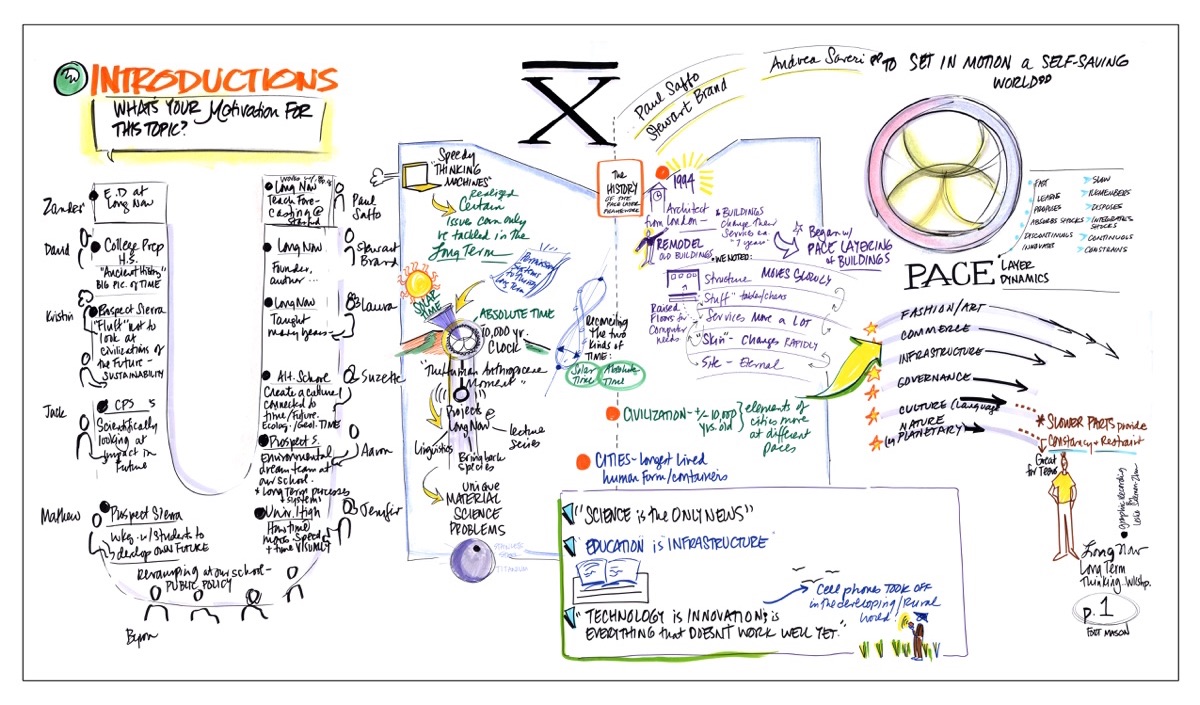 INTRODUCTIONS
WHAT'S YOUR Motivation FOR
THIS TOPIC?
Zander
E.D at
Long Now
David
College Prep
H.S.
"Ancient History"
BIG PIC. OF TIME
Kristin
Prospect Sierra
look at
civilizations of
the Future
SUSTAINABILITY
Jack
CPS
Scientifically
looking at
impact in
Future
Mathew
Prospect Sierra
Wkg. w/Students to
develop OWN FUTURE
Revamping at our school-
PUBLIC POLICY
Byron
Long Now
Teach Fore-
casting @
Stanford
Paul
Saffo
Long Now
Founder,
author...
Stewart
Brand
Long Now
Taught
many years
Laura
Alt. School
Create a culture
connected to
time/future.
Ecolog./Geol. TIMES
Suzette
Prospect S.
Environmental
dream team at
our school.
+ Long Term processes
+ systems
Aaron
Univ. High
How time
moves - Speed
+ time VISUALLY
Jenifir
X
Speedy
"THINKING
MACHINES"
realized
Certain
issues can only
be tackled in the
Long Term
Long Term
SOLAR
TIME
ABSOLUTE TIME
10,000 yr.
CLOCK
"The Human Anthropocene
Moment"
Projects @
Long Now
Linguistics
lecture
series
Bring back
species
UNIQUE
MATERIAL
SCIENCE
PROBLEMS
STAINLESS
STEEL
TITANIUM
reconciling
the two
kinds of
TIME:
Solar
Time
Absolute
Time
Paul Saffo
Stewart Brand
Andrea Saveri
"TO SET IN MOTION A SELF-SAVING
WORLD"
The
HISTORY
OF THE
PACE LAYER
FRAMEWORK
1994
Architect
from London-
REMODEL
OLD BUILDINGS
* BUILDINGS
Change their
Services ea
"7 years"
Began w/
PACE LAYERING
of BUILDINGS
*WE NOTED:
Structure MOVES SLOWLY
"Stuff" tables/chairs
Services Move A LOT
"Skin" - Changes RAPIDLY
Site - Eternal
Raised
Floors for
Computer
needs
CIVILIZATION - +/- 10,000
yrs. old
elements of
cities move
at different
paces
CITIES - longest lived
human form/containers
"SCIENCE is the ONLY NEWS"
"EDUCATION is INFRASTRUCTURE"
"TECHNOLOGY is INNOVATION; is
EVERYTHING that DOESN'T WORK WELL YET."
Cell phones TOOK OFF
in the developing/Rural
world!
FAST
LEARNS
PROPOSES
ABSORBS SHOCKS
DISCONTINUOUS
INNOVATES
SLOW
REMEMBERS
DISPOSES
INTEGRATES
SHOCKS
CONTINUOUS
CONSTRAINS
PACE LAYER
DYNAMICS
FASHION/ART
COMMERCE
INFRASTRUCTURE
GOVERNANCE
CULTURE (Language
NATURE
(or PLANETARY)
* SLOWER PARTS provide
Constancy + Restraint
Great
for Teens
graphic recording
by
Long Now
Long Term
Thinking Wkshp.
p. 1
FORT MASON